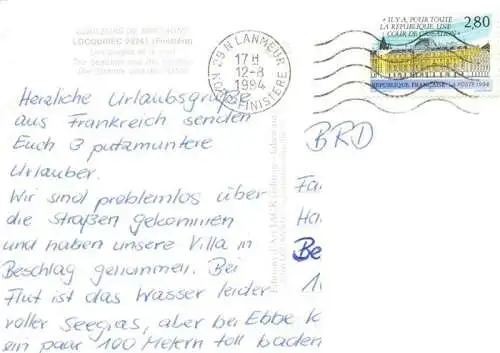 COULEURS DE BRETAGNE
LOCQUIREC 29241 (Finistère)
29 N LANMEUR
17 H
12-8
1994
NORD FINISTERE
« IL Y A, POUR TOUTE
LA RÉPUBLIQUE, UNE
COUR DE CASSATION »
2,80
RÉPUBLIQUE FRANÇAISE LA POSTE 1994
Herzliche Urlaubsgrüße
aus Frankreich senden
Euch 3 putzmuntere
Urlauber.
Wir sind problemlos über
die Straßen gekommen
und haben unsere Villa in
Beschlag genommen. Bei
Flut ist das Wasser leider
voller Seegras, aber bei Ebbe k
ein paar 100 Metern toll baden
BRD
Fa
Ha
Be
1